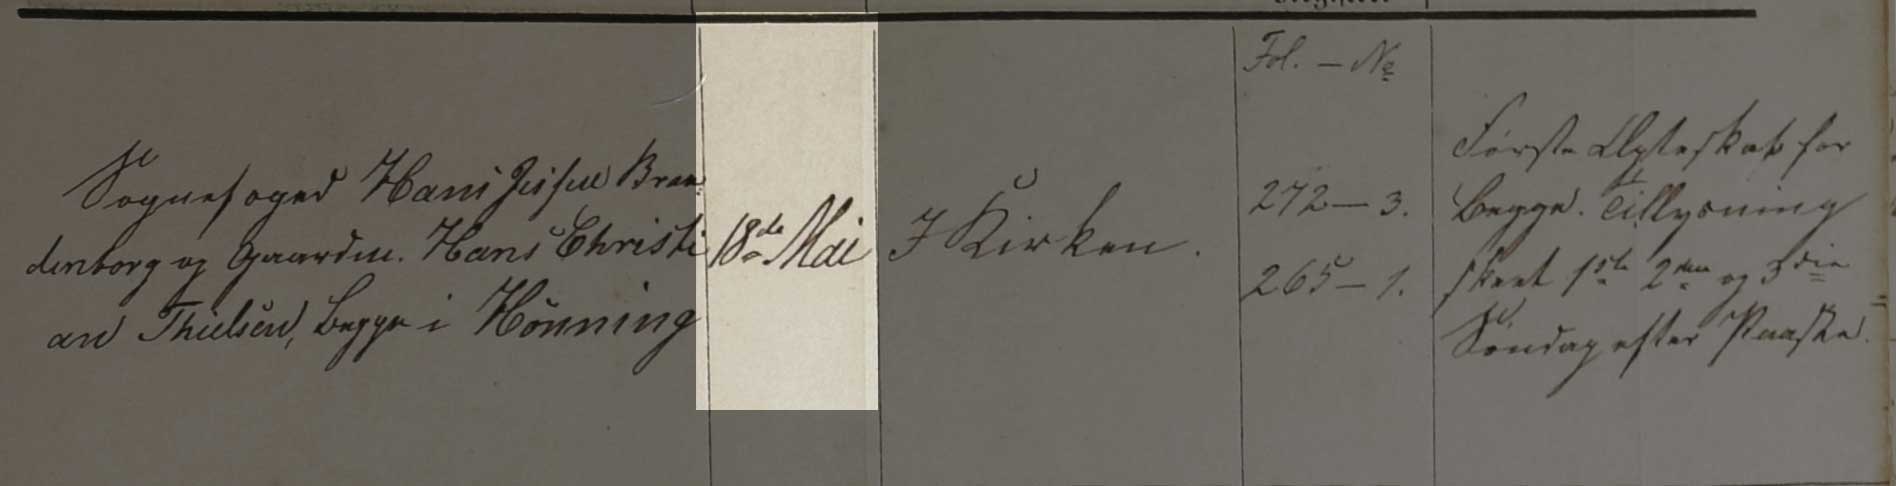 Fol. — No
Sognefoged Hans Jessen Bran
denborg og Gaardm. Hans Christi
an Thielsen, begge i Hönning
18de Mai
I Kirken.
272 — 3.
265 — 1.
Første Ægteskab for
Begge. Tillysning
skeet 1ste 2den og 3die
Søndag efter Paaske.